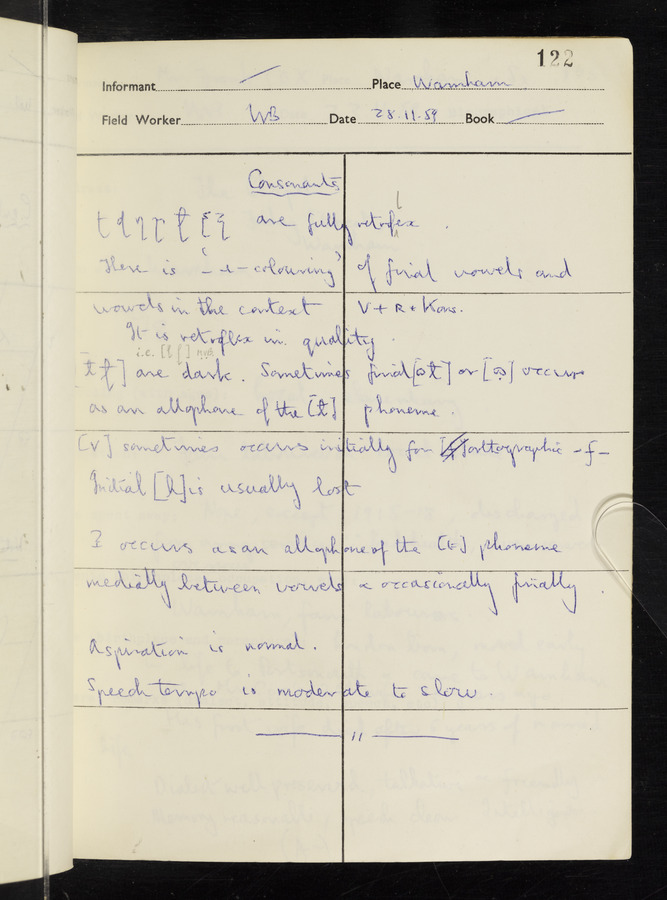 122
Informant Place Warnham
Field Worker WB Date 28.11.59 Book
Consonants
are fully retroflex.
There is "-ɹ-colouring" of final vowels and
vowels in the context V + R + Kons.
It is retroflex in quality.
i.e.
are dark. Sometimes final or occurs
as an allophone of the [ɫ] phoneme.
[v] sometimes occurs initially for orthographic -f-
Initial [h] is usually lost
ʔ occurs as an allophone of the [t] phoneme
medially between vowels & occasionally finally.
Aspiration is normal.
Speech tempo is moderate to slow.